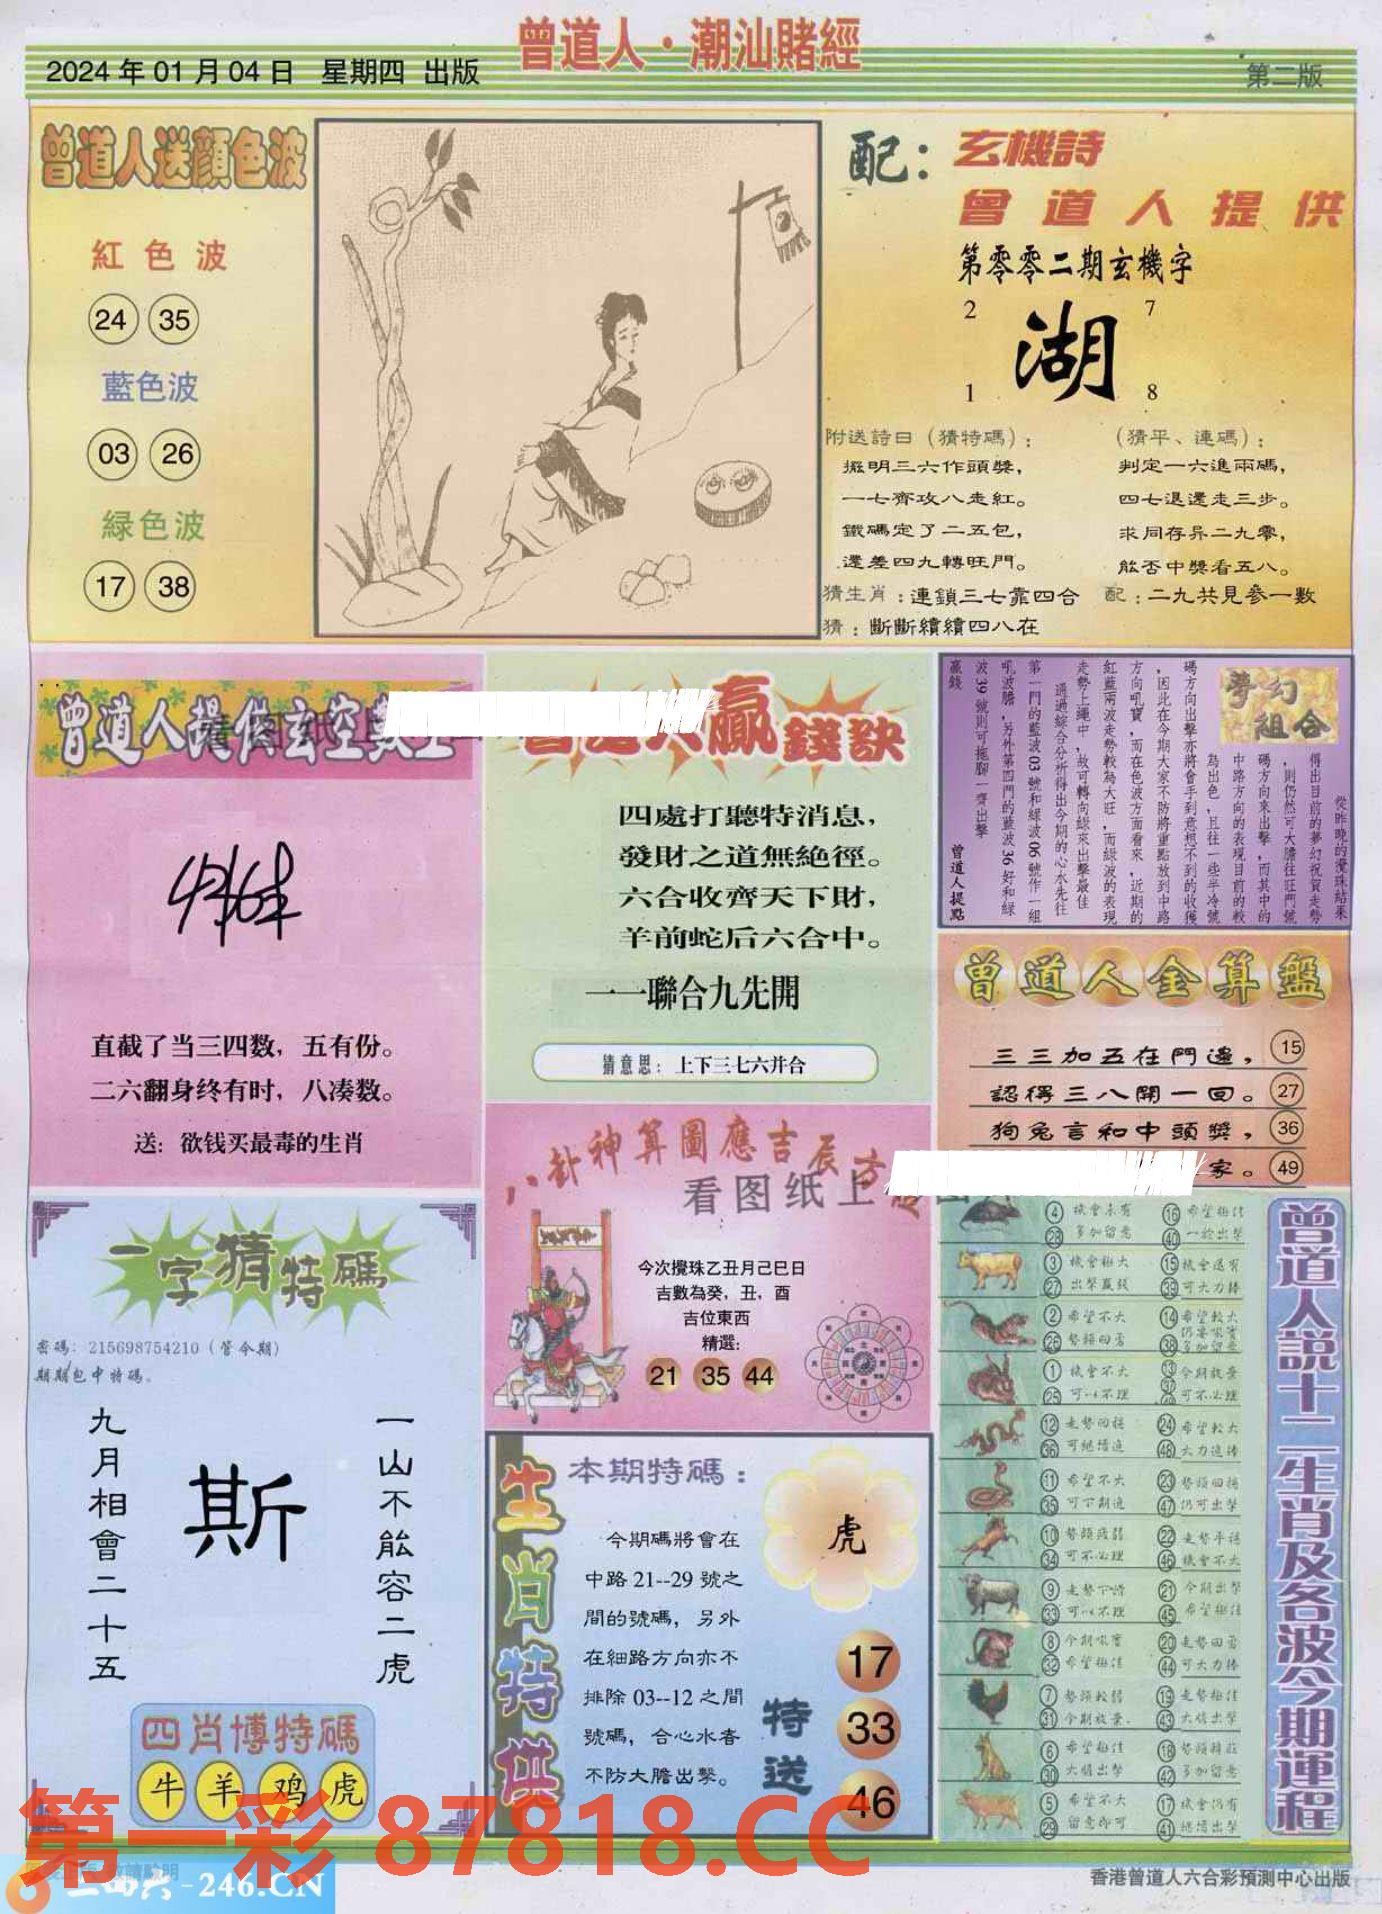 曾道人·潮汕賭經
2024年01月04日 星期四 出版
第二版
曾道人送顏色波
紅色波
24 35
藍色波
03 26
緑色波
17 38
配：
玄機詩
曾道人提供
第零零二期玄機字
2 7
湖
1 8
附送詩曰（猜特碼）：
挑明三六作頭獎，
一七齊攻八走紅。
鐵碼定了二五包，
還差四九轉旺門。
（猜平、連碼）：
判定一六進兩碼，
四七退還走三步。
求同存异二九零，
能否中獎看五八。
猜生肖：連鎖三七靠四合
配：二九共見参一數
猜：斷斷續續四八在
曾道人提供玄空數
直截了当三四数，五有份。
二六翻身终有时，八凑数。
送：欲钱买最毒的生肖
贏錢訣
四處打聽特消息，
發財之道無絶徑。
六合收齊天下財，
羊前蛇后六合中。
一一聯合九先開
猜意思：上下三七六并合
夢幻組合
從昨晚的攪珠結果
得出目前的夢幻祝賀走勢
，則仍然可大膽往旺門號
碼方向來出擊，而其中的
中路方向的表現目前的較
為出色，且往一些半冷號
碼方向出擊亦將會手到意想不到的收獲
，因此在今期大家不防將重點放到中路
方向吼寶，而在色波方面看來，近期的
紅藍兩波走勢較為大旺，而緑波的表現
走勢上繩中，故可轉向緑來出擊最佳
通過綜合分析得出今期的心水先往
第一門的藍波03號和緑波06號作一組
吼波膽，另外第四門的藍波36好和緑
波39號則可拖脚一齊出擊
贏錢
曾道人提點
曾道人金算盤
三三加五在門邊， 15
認得三八開一回。 27
狗兔言和中頭獎， 36
家。 49
八卦神算圖應吉辰方
看图纸上
今次攪珠乙丑月己巳日
吉數為癸，丑，酉
吉位東西
精選：
21 35 44
一字猜特碼
密碼：215698754210（管今期）
期期包中特碼。
一山不能容二虎
斯
九月相會二十五
四肖博特碼
牛 羊 鸡 虎
生肖特供
本期特碼：
今期碼將會在
中路21--29號之
間的號碼，另外
在細路方向亦不
排除03--12之間
號碼，合心水者
不防大膽出擊。
虎
特送
17
33
46
曾道人説十二生肖及各波今期運程
4 機會未有 16 希望極佳
28 多加留意 40 一於出擊
3 機會極大 15 機會還有
27 出擊贏錢 39 可大力捧
2 希望不大 14 希望較大
26 勢頭回勇 38
1 機會不大 13 今期放棄
25 可以不理 可不必理
12 走勢回穩 24 希望較大
36 可繼續追 48 大力追捧
11 希望不大 23 勢頭回穩
35 可下期追 47 仍可出擊
10 勢頭疲弱 22 走勢平穩
34 可不必理 46 機會不大
9 走勢下滑 21 今期出擊
33 可以不理 45 希望極佳
8 今期吼寶 20 走勢回勇
32 希望極佳 44 可大力捧
7 勢頭較弱 19 走勢極佳
31 今期放棄 43 大膽出擊
6 希望極佳 18
30 大膽出擊 42 多加留意
5 希望不大 17 機會仍有
29 留意即可 41 繼續出擊
第一彩 87818.CC
二四六-246.CN
香港曾道人六合彩預測中心出版